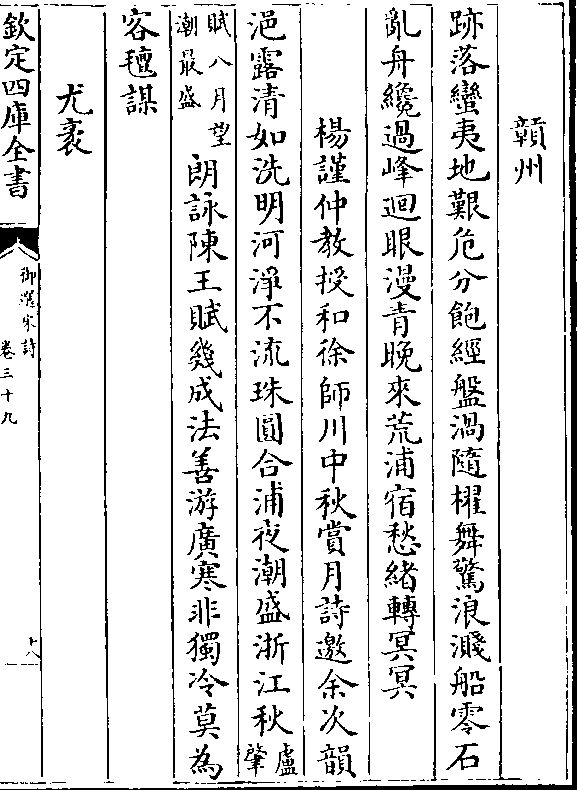 贑州
跡落蠻夷地艱危分飽經盤渦隨櫂舞驚浪濺船零石
亂舟纔過峰迴眼漫青晚來荒浦宿愁緒轉冥冥
楊謹仲教授和徐師川中秋賞月詩邀余次韻
浥露清如洗明河淨不流珠圓合浦夜潮盛浙江秋盧肇
賦八月望潮最盛朗詠陳王賦幾成法善游廣寒非獨冷莫為
客氊謀
尤袤
欽定四庫全書
御選宋詩
卷三十九
十八